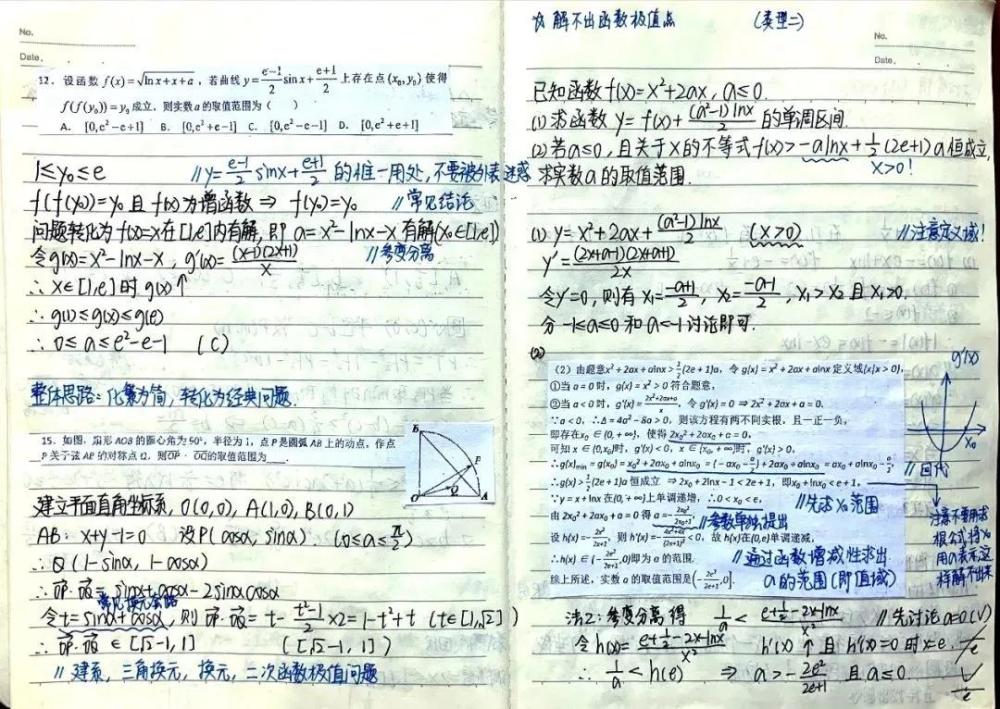 No.
Date.
12. 设函数 f(x)=√(lnx+x+a)，若曲线 y=(e-1)/2 sinx+(e+1)/2 上存在点(x₀,y₀)使得
f(f(y₀))=y₀成立，则实数a的取值范围为（ ）
A. [0,e²-e+1] B. [0,e²+e-1] C. [0,e²-e-1] D. [0,e²+e+1]
1≤y₀≤e //y=(e-1)/2 sinx+(e+1)/2 的惟一用处,不要被外表迷惑
f(f(y₀))=y₀ 且 f(x)为增函数 ⇒ f(y₀)=y₀ //常见结论
问题转化为f(x)=x在[1,e]内有解,即 a=x²-lnx-x 有解(x₀∈[1,e])
令g(x)=x²-lnx-x , g'(x)=(x-1)(2x+1)/x //参变分离
∴ x∈[1,e]时 g(x)↑
∴ g(1)≤g(x)≤g(e)
∴ 0≤a≤e²-e-1 (C)
整体思路：化繁为简，转化为经典问题.
15. 如图，扇形AOB的圆心角为90°，半径为1，点P是圆弧AB上的动点，作点
P关于弦AB的对称点Q，则OP·OQ的取值范围为____.
B
P
Q
O
A
建立平面直角坐标系, O(0,0), A(1,0), B(0,1)
AB: x+y-1=0 设P(cosα, sinα) (0≤α≤π/2)
∴ Q(1-sinα, 1-cosα)
∴ OP·OQ= sinα+cosα-2sinαcosα
常见换元套路
令t=sinα+cosα, 则 OP·OQ= t-(t²-1)/2 ×2=1-t²+t (t∈[1,√2])
∴ OP·OQ ∈[√2-1,1] ([√2-1,1])
//建系, 三角换元, 换元, 二次函数极值问题
☆ 解不出函数极值点 (类型二)
No.
Date.
已知函数f(x)=x²+2ax, a≤0.
(1) 求函数 y=f(x)+(a²-1)lnx/2 的单调区间.
(2) 若a≤0, 且关于x的不等式f(x)>-alnx+½(2e+1)a恒成立,
求实数a的取值范围. x>0!
(1) y=x²+2ax+(a²-1)lnx/2 (x>0) //注意定义域!
y'=(2x+a-1)(2x+a+1)/2x
令y'=0, 则有 x₁=(-a+1)/2, x₂=(-a-1)/2, x₁>x₂ 且 x₁>0.
分-1≤a≤0 和 a<-1 讨论即可.
(2)
（2）由题意x²+2ax+alnx>½(2e+1)a，令g(x)=x²+2ax+alnx定义域{x|x>0}，
①当a=0时，g(x)=x²>0符合题意，
②当a<0时，g'(x)=(2x²+2ax+a)/x，令g'(x)=0⇒2x²+2ax+a=0.
∵a<0，∴Δ=4a²-8a>0，则该方程有两不同实根，且一正一负，
即存在x₀∈(0,+∞)，使得2x₀²+2ax₀+a=0，
可知x∈(0,x₀)时，g'(x)<0，x∈(x₀,+∞)时，g'(x)>0.
∴g(x)min=g(x₀)=x₀²+2ax₀+alnx₀=(-ax₀-a/2)+2ax₀+alnx₀=ax₀+alnx₀-a/2，
∴g(x)>½(2e+1)a恒成立⇒2x₀+2lnx₀-1<2e+1，即x₀+lnx₀<e+1，
∵y=x+lnx在(0,+∞)上单调递增，∴0<x₀<e， //先求x₀范围
由2x₀²+2ax₀+a=0得a=-2x₀²/(2x₀+1)， //参数单独提出
设h(x)=-2x²/(2x+1)，则h'(x)=-(4x²+4x)/(2x+1)²<0，故h(x)在(0,e)单调递减，
∴h(x)∈(-2e²/(2e+1),0)即为a的范围. //通过函数增减性求出
综上所述，实数a的取值范围是(-2e²/(2e+1),0]. a的范围(即值域)
g'(x)
x₀
//回代
注意不要用求
根公式将x₀
用a表示,这
样解不出来
法2: 参变分离得 1/a < (e+½-2x-lnx)/x² //先讨论a=0 (√)
令h(x)=(e+½-2x-lnx)/x² h'(x)↑ 且 h'(x)=0时x=e.
∴ 1/a<h(e) ⇒ a>-2e²/(2e+1) 且 a≤0.